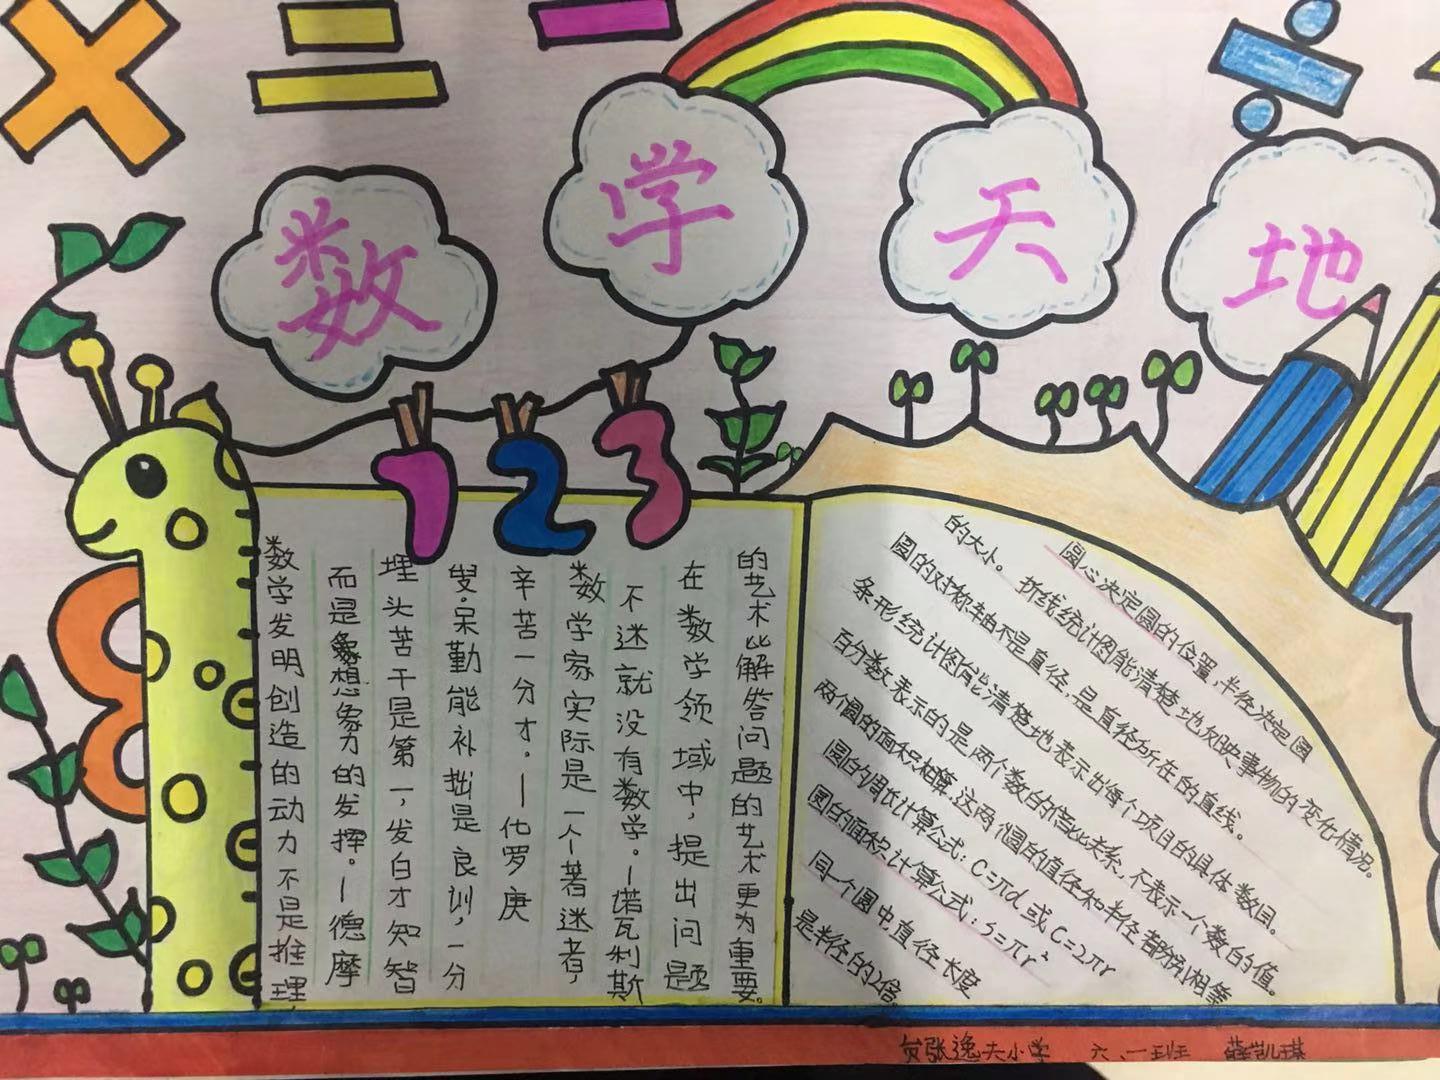 数学天地
123
数学发明创造的动力不是推理,
而是想象力的发挥。—德摩
埋头苦干是第一,发白才知智
叟.呆勤能补拙是良训,一分
辛苦一分才。—化罗庚
数学家实际是一个著迷者,
不迷就没有数学。—诺瓦利斯
在数学领域中,提出问题
的艺术比解答问题的艺术更为重要。
圆心决定圆的位置,半径决定圆
的大小。 折线统计图能清楚地反映事物的变化情况。
圆的对称轴不是直径,是直径所在的直线。
条形统计图能清楚地表示出每个项目的具体数目。
百分数表示的是两个数的倍比关系,不表示一个数的值。
两个圆的面积相等,这两个圆的直径和半径都分别相等
圆的周长计算公式:C=πd或C=2πr
圆的面积计算公式:S=πr²
同一个圆中直径长度
是半径的2倍。
张逸夫小学 六、一班 薛凯琪